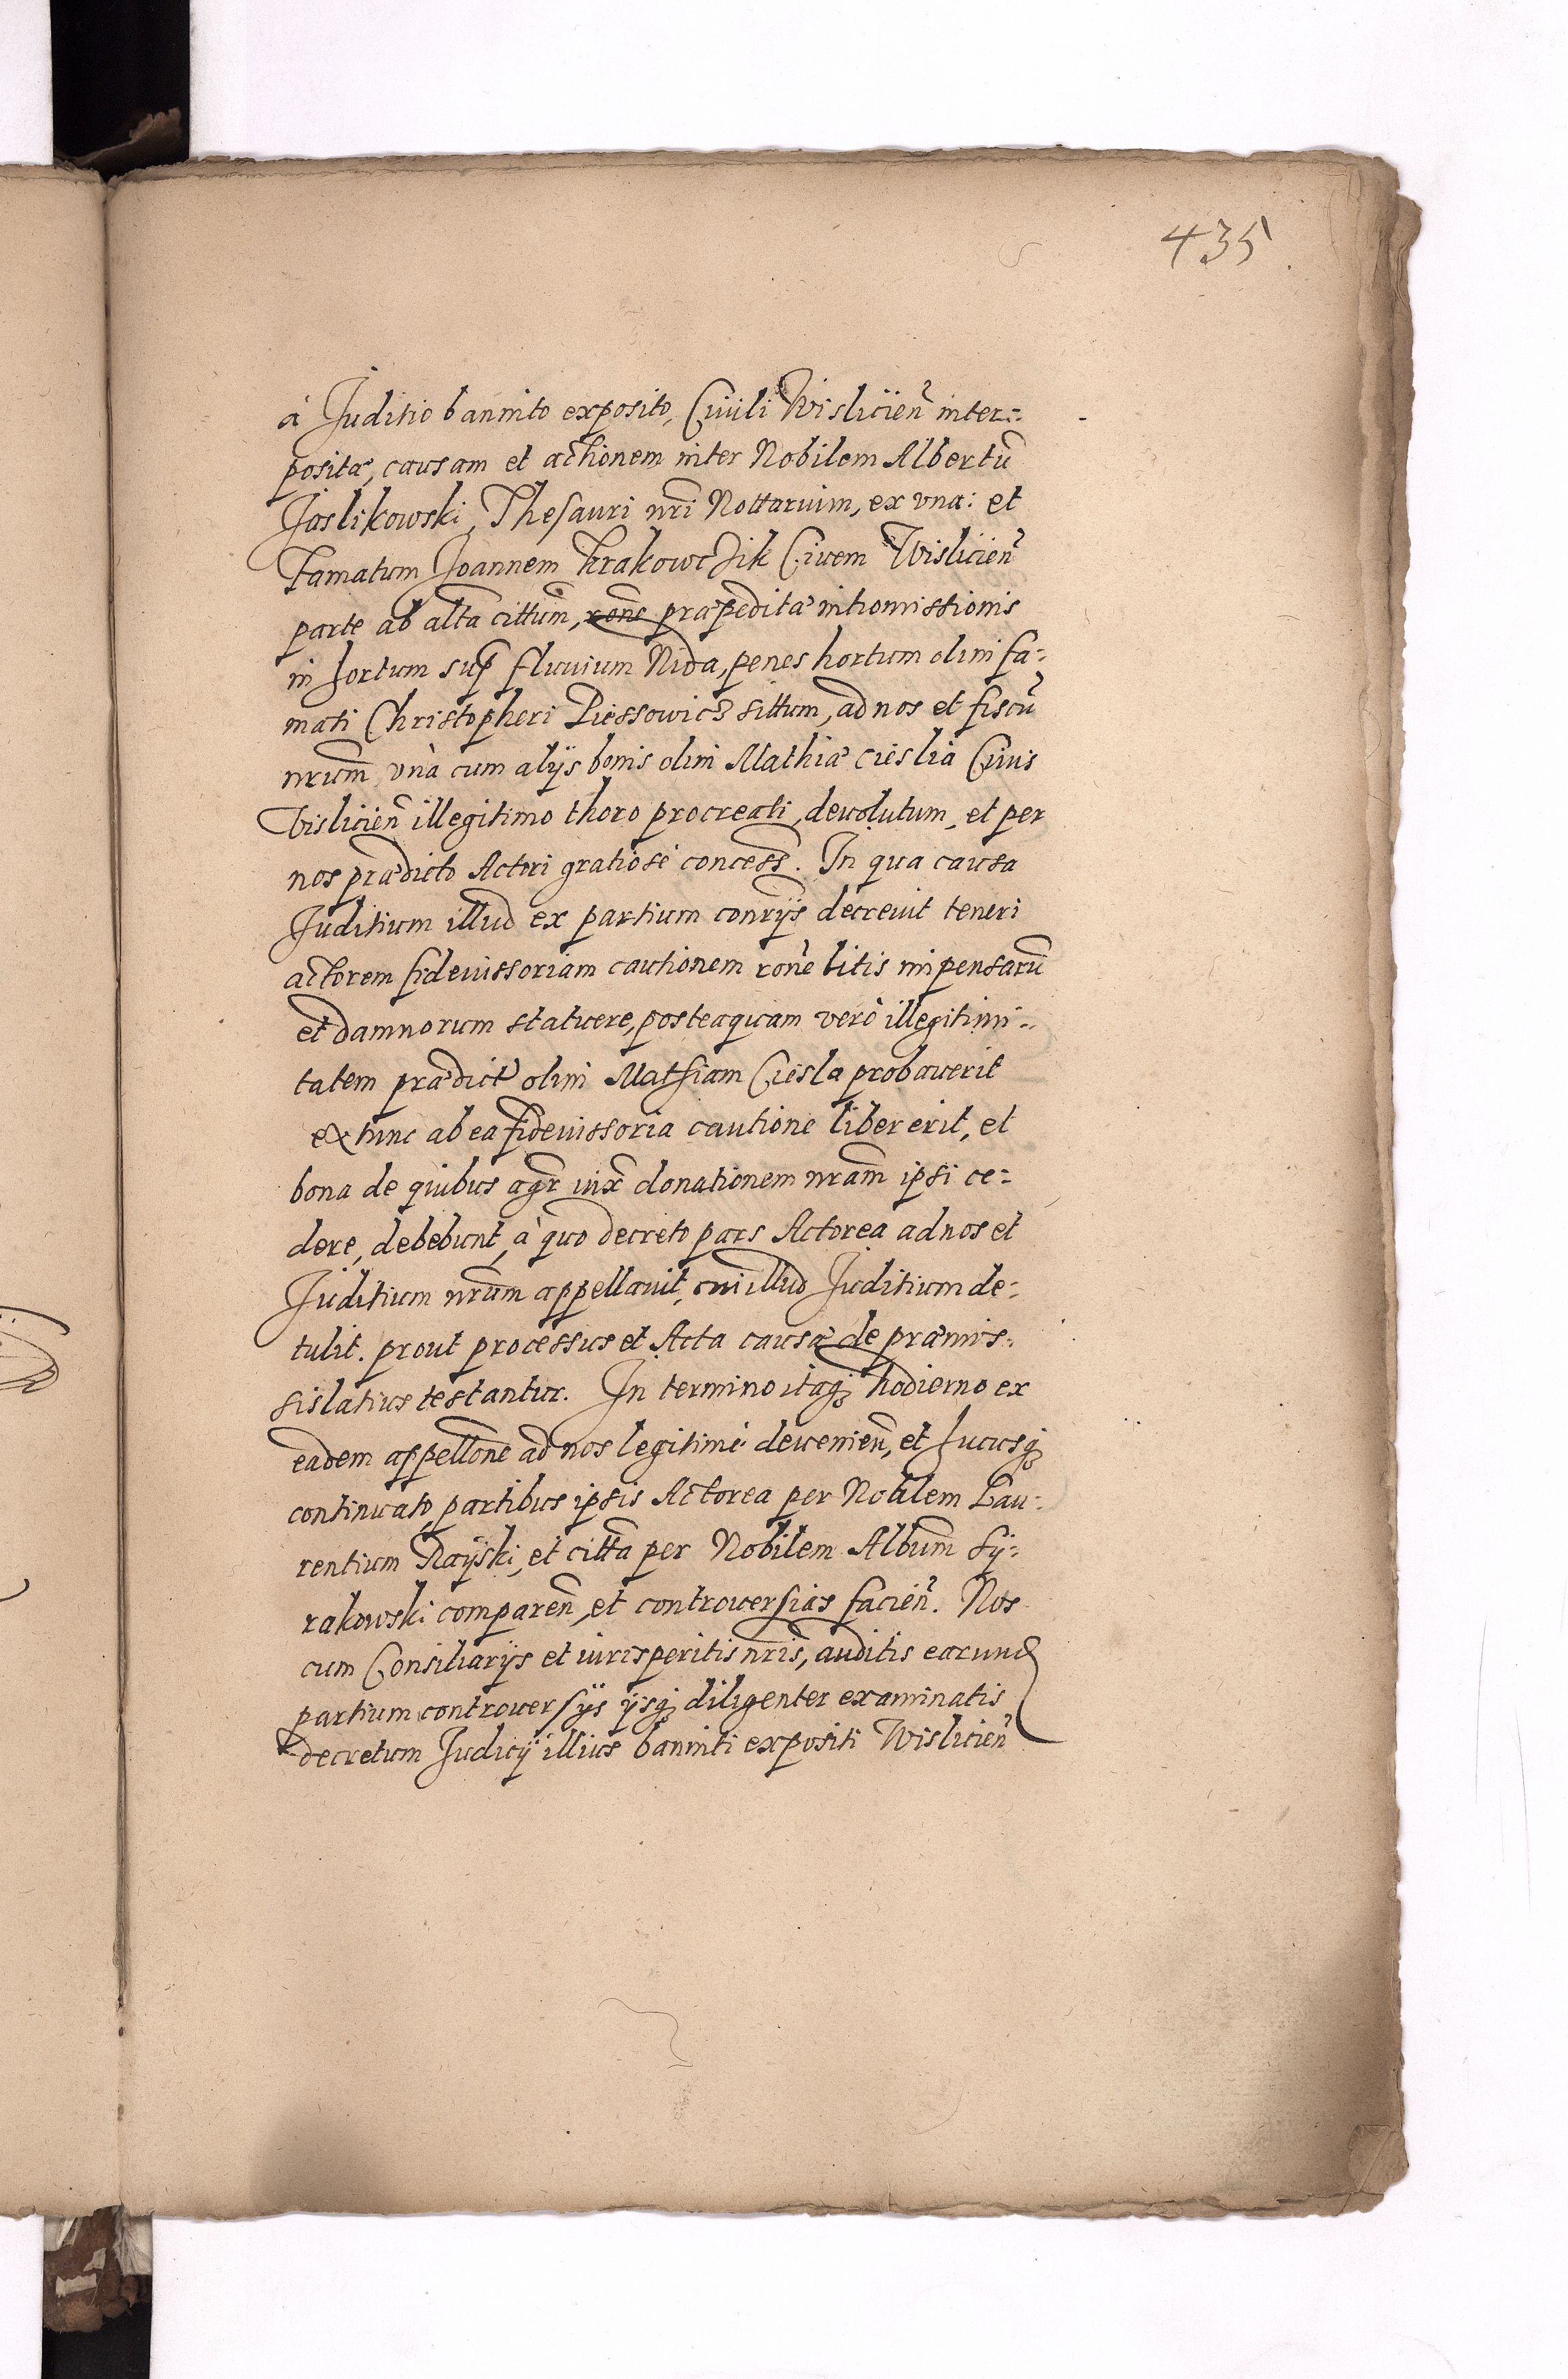 435
à Juditio bannito exposito, Ciuili Wislicien̄ inter=
positã, causam et actionem inter Nobilem Albertū
Jaslikowski, Thesauri nr̄i Nottarium, ex vna: et
Famatum Joannem Krakowczik Ciuem Wislicien̄
parte ab alt̄a cittum̄, rōne præpeditæ intromissionis
in hortum sup̄ fluuium Nida, penes hortum olim fa=
mati Christopheri Piessowicz sittum, ad nos et fiscū
nrum̄ vnà cum alÿs bonis olim Mathiæ Cieslia Ciuis
Wislicien̄ illegitimo thoro procreati, deuolutum, et per
nos prædicto Actori gratiosè concess̄. In qua causa
Juditium illud ex partium conr̄ÿs decreuit teneri
actorem fideiussoriam cautionem rōne litis impensarū
et damnorum statuere, posteaquam verò illegitimi=
tatem prædict̄ olim Mathiam Ciesla probauerit
ex tunc ab ea fideiussoria cautione liber erit, et
bona de quibus agr̄ iux̄ donationem nram̄ ipsi ce=
dere, debebunt, à quo decreto pars Actorea ad nos et
Juditium nrum̄ appellauit, cui illud Juditium de=
tulit. prout processus et Acta causæ de præmis=
sis latius testantur. In termino itaq₃ hodierno ex
eadem appellōne ad nos legitimè deuenien̄, et hucusq₃
continuato, partibus ipsis Actorea per Nobilem Lau=
rentium Raÿski, et citt̄a per Nobilem Albūm Sÿ=
rakowski comparen̄, et controuersias facien̄. Nos
cum Consiliarÿs et iurisperitis nr̄is, auditis earund̄
partium controuersÿs ÿsq₃ diligenter examinatis
decretum Judicÿ illius banniti expositi Wislicien̄